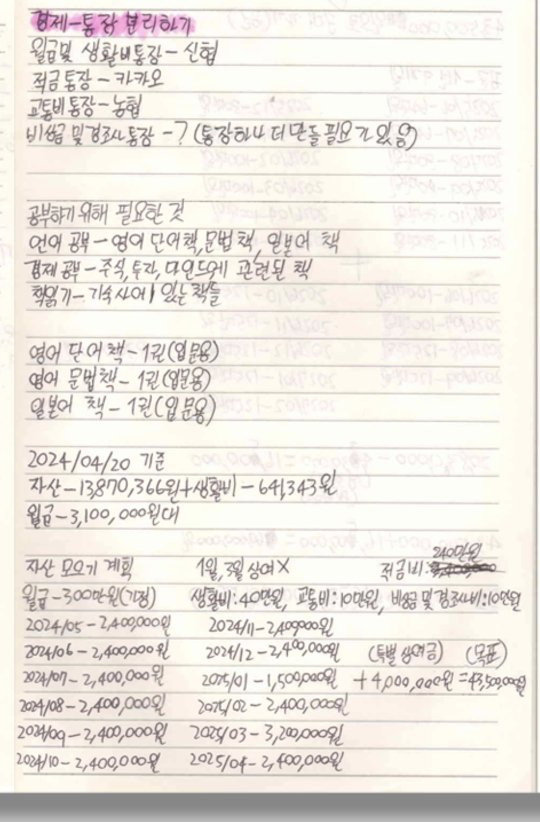 경제-통장 분리하기
월급 및 생활비통장 - 신협
적금통장 - 카카오
교통비통장 - 농협
비상금 및 경조사통장 - ? (통장 하나 더 만들 필요가 있음)
공부하기 위해 필요한 것
언어 공부 - 영어 단어책, 문법 책, 일본어 책
경제 공부 - 주식, 투자, 마인드에 관련된 책
책읽기 - 기숙사에 있는 책들
영어 단어 책 - 1권(입문용)
영어 문법책 - 1권(입문용)
일본어 책 - 1권(입문용)
2024/04/20 기준
자산 - 13,870,366원 + 생활비 - 641,343원
월급 - 3,100,000원대
자산 모으기 계획 1월, 3월 상여 X 적금비: 240만원
월급 - 300만원(가정) 생활비: 40만원, 교통비: 10만원, 비상금 및 경조사비: 10만원
2024/05 - 2,400,000원 2024/11 - 2,400,000원
2024/06 - 2,400,000원 2024/12 - 2,400,000원 (특별 상여금) (목표)
2024/07 - 2,400,000원 2025/01 - 1,500,000원 + 4,000,000원 = 43,500,000원
2024/08 - 2,400,000원 2025/02 - 2,400,000원
2024/09 - 2,400,000원 2025/03 - 3,200,000원
2024/10 - 2,400,000원 2025/04 - 2,400,000원